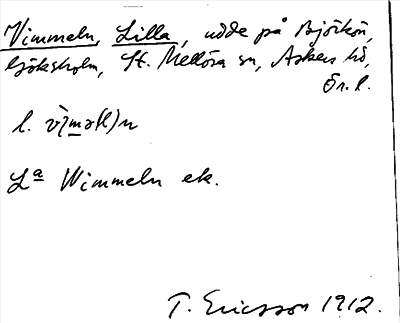 Vimmeln, Lilla, udde på Björkön,
Göksholm, St. Mellösa sn, Askers hd,
Ör. l.
l. vìmə(l)n
La Wimmeln ek.
T. Ericsson 1912.